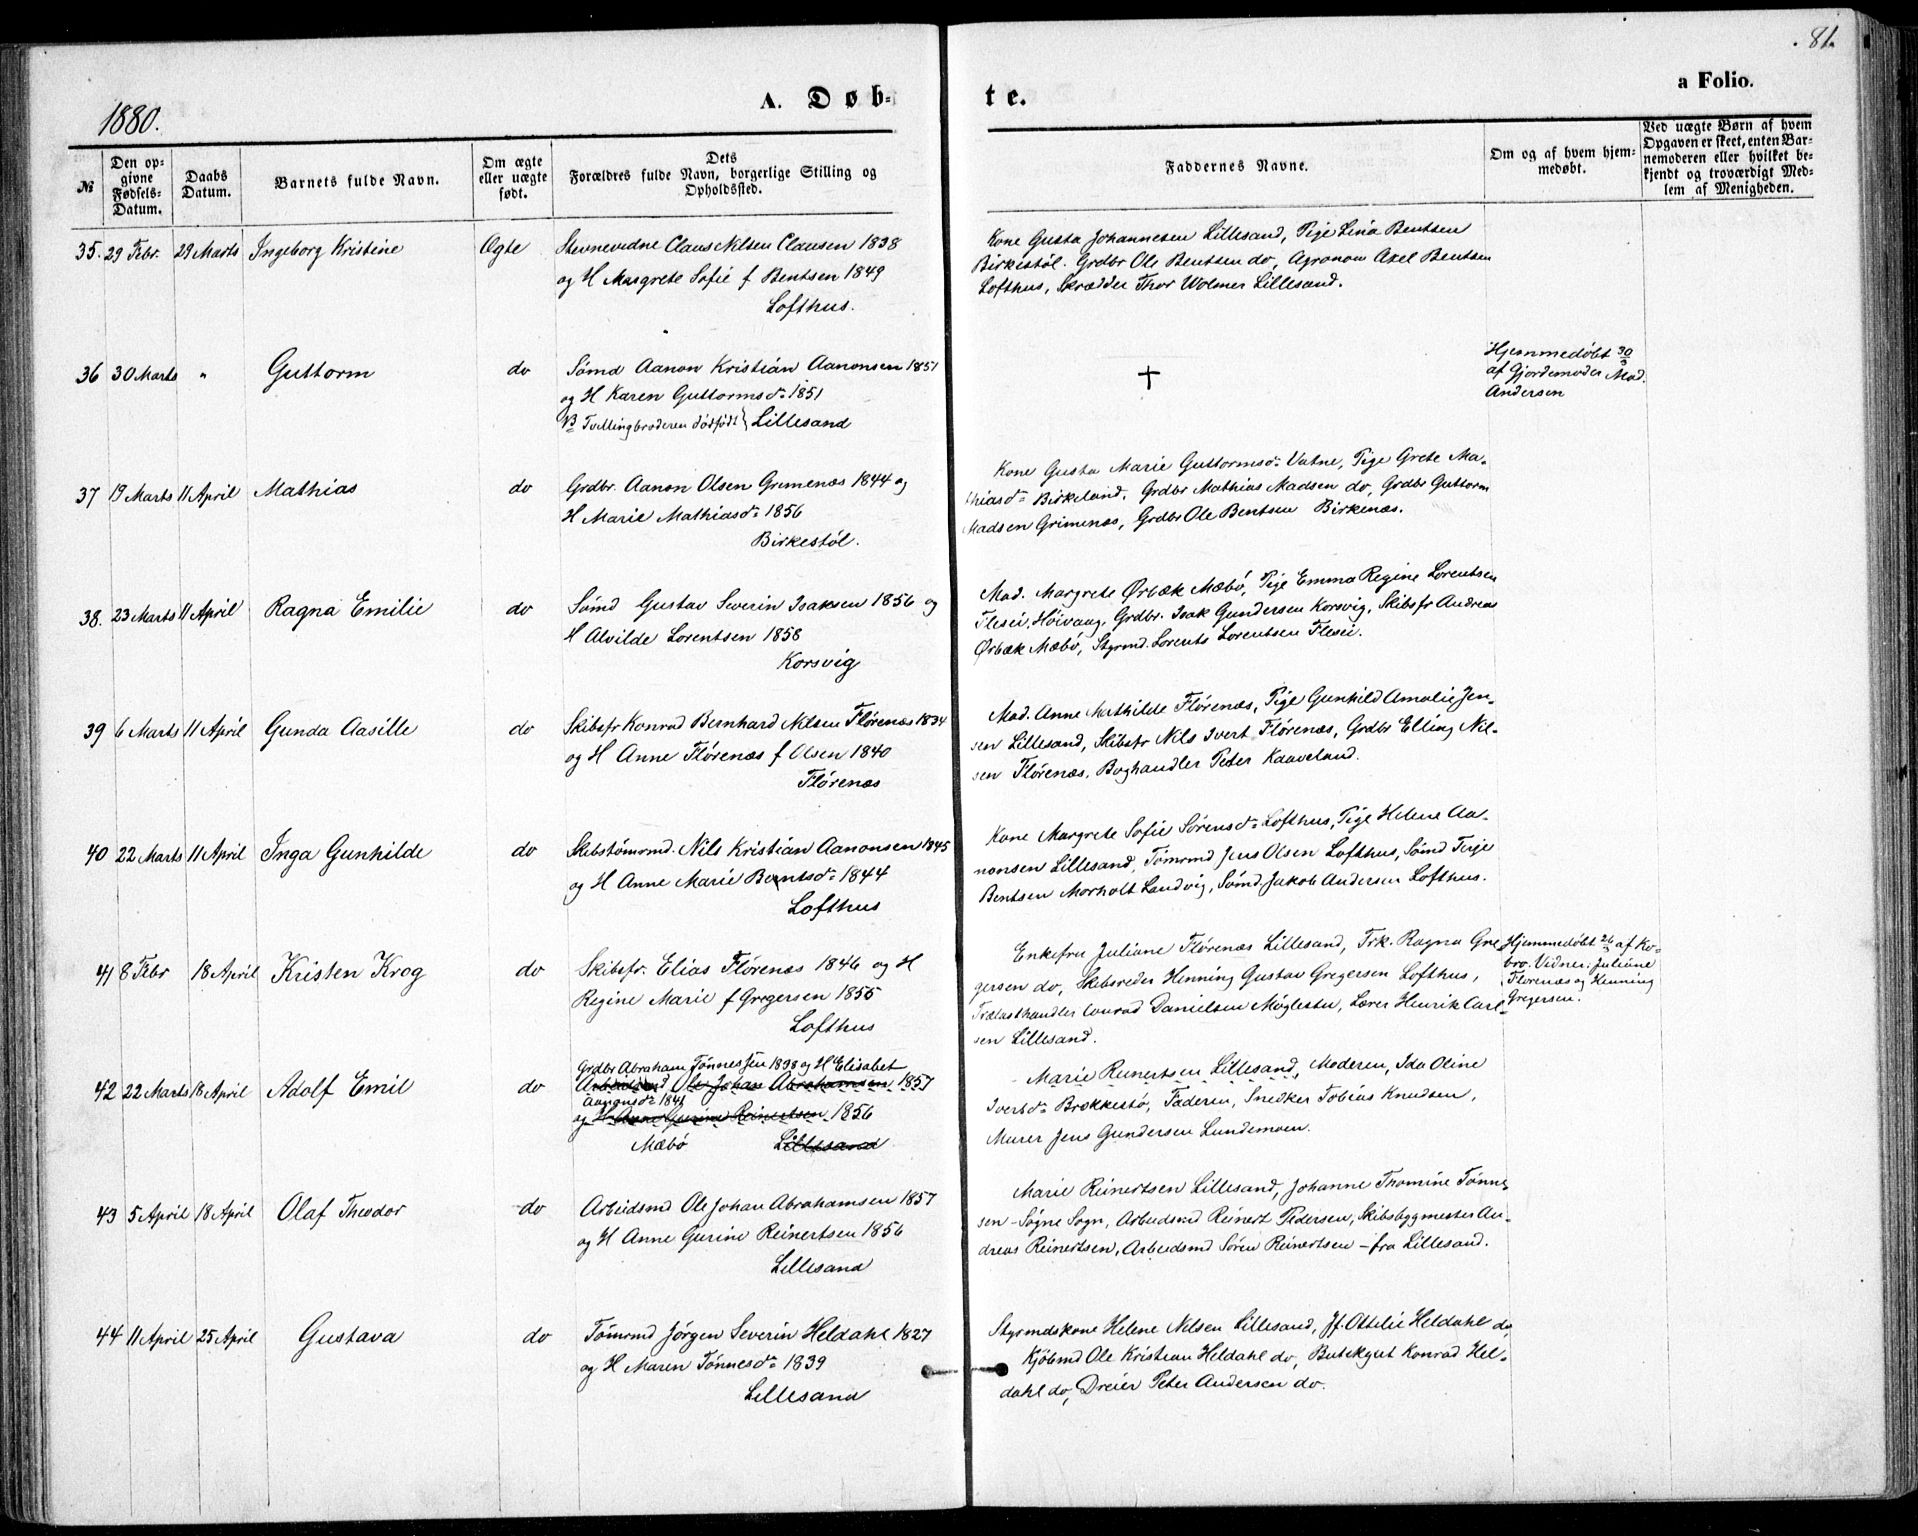 81.
1880.
A. Døb-
te.
a Folio.
№
Den op-
givne
Fødsels-
Datum.
Daabs
Datum.
Barnets fulde Navn.
Om ægte
eller uægte
født.
Dets
Forældres fulde Navn, borgerlige Stilling og
Opholdssted.
Faddernes Navne.
Om og af hvem hjem-
medøbt.
Ved uægte Børn af hvem
Opgaven er skeet, enten Bar-
nemoderen eller hvilket be-
kjendt og troværdigt Med-
lem af Menigheden.
35. 29 Febr. 29 Marts Ingeborg Kristine Ægte Stevnevidne Claus Nilsen Clausen 1838
og H Margrete Sofie f Bentsen 1849
Lofthus.
Kone Gusta Johannesen Lillesand, Pige Lina Bentsen
Birkestøl. Grdbr Ole Bentsen do, Agronom Axel Bentsen
Lofthus, Skrædder Thor Wolmer Lillesand.
36 30 Marts " Guttorm do Sømd Aanon Kristian Aanonsen 1851
og H Karen Guttormsd. 1851
NB Tvillingbroderen dødfødt } Lillesand
+
Hjemmedøbt 30/3
af Gjordemoder Mad.
Andersen
37 19 Marts 11 April Mathias do Grdbr. Aanon Olsen Grimenæs 1844 og
H Marie Mathiasd. 1856
Birkestøl.
Kone Gusta Marie Guttormsd. Vatne, Pige Grete Ma-
thiasd. Birkeland, Grdbr Mathias Madsen do, Grdbr Guttorm
Madsen Grimenæs, Grdbr Ole Bentsen Birkenæs.
38. 23 Marts 11 April Ragna Emilie do Sømd Gustav Severin Isaksen 1856 og
H Alvilde Lorentsen 1858
Korsvig
Mad. Margrete Ørbæk Mæbø, Pige Emma Regine Lorentsen
Flesei, Høivaag, Grdbr. Isak Gundersen Korsvig, Skibsfr Andreas
Ørbæk Mæbø, Styrmd. Lorents Lorentsen Flesei.
39 6 Marts 11 April Gunda Aasille do Skibsfr Konrad Bernhard Nilsen Flørenæs 1834
og H Anne Flørenæs f Olsen 1840
Flørenæs
Mad. Anne Mathilde Flørenæs, Pige Gunhild Amalie Jen-
sen Lillesand, Skibsfr Nils Ivert Flørenæs, Grdbr Elling Nil-
sen Flørenæs, Boghandler Peter Kaaveland.
40 22 Marts 11 April Inga Gunhilde do Skibstømrmd. Nils Kristian Aanonsen 1845
og H Anne Marie Berntsd. 1844
Lofthus
Kone Margrete Sofie Sørensd. Lofthus, Pige Helene Aa-
nonsen Lillesand, Tømrmd Jens Olsen Lofthus, Sømd Terje
Bentsen Morholt Landvig, Sømd. Jakob Andersen Lofthus.
41 8 Febr 18 April Kristen Krog do Skibsfr. Elias Flørenæs 1846 og H
Regine Marie f Gregersen 1855
Lofthus
Enkefru Juliane Flørenæs Lillesand, Frk. Ragna Gre-
gersen do, Skibsreder Henning Gustav Gregersen Lofthus,
Trælasthandler Conrad Danielsen Møglestu, Lærer Henrik Carl-
sen Lillesand.
Hjemmedøbt 26 af Ko-
bro. Vidner: Juliane
Flørenæs og Henning
Gregersen.
42 22 Marts 18 April Adolf Emil do Grdbr Abraham Tønnessen 1838 og H Elisabet
Arbeidsmd Ole Johan Abrahamsen 1857
1841
og H Anne Gurine Reinertsen 1856
Mæbø Lillesand
Marie Reinertsen Lillesand, Moderen, Ida Oline
Ivertsd. Brækkestø, Faderen, Snedker Tobias Knudsen,
Murer Jens Gundersen Lundemoen.
43 5 April 18 April Olaf Theodor do Arbeidsmd Ole Johan Abrahamsen 1857
og H Anne Gurine Reinertsen 1856
Lillesand
Marie Reinertsen Lillesand, Johanne Thomine Tønne-
sen - Søgne Sogn, Arbeidsmd Reinert Pedersen, Skibsbygmester An-
dreas Reinertsen, Arbeidsmd Søren Reinertsen - fra Lillesand.
44 11 April 25 April Gustava do Tømrmd Jørgen Severin Heldahl 1827
og H Maren Tønnesd. 1839
Lillesand
Styrmdskone Helene Nilsen Lillesand, Jf. Ottilie Heldahl do,
Kjøbmd Ole Kristian Heldahl do, Butikgut Konrad Hel-
dahl do, Dreier Peter Andersen do.